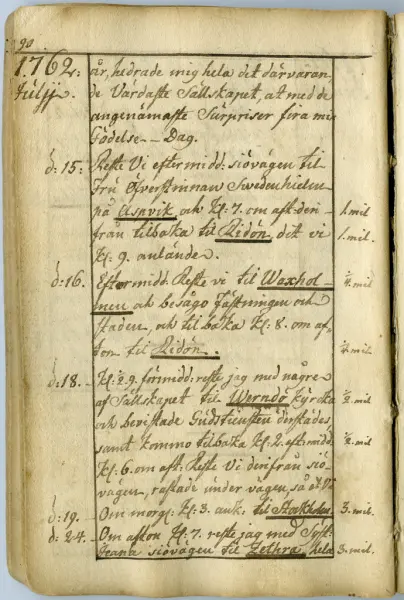 90
1762: år, hedrade mig hela det därvaran-
Julij. de Värdaste Sällskapet, at med de
angenämaste Surpriser fira min
Födelse-Dag.
d: 15: Reste Vi eftermidd: siövägen til
Fru Öfverstinnan Swedenhielm
på Aspvik och Kl: 7. om aft: deri- 1. mil
från tilbaka til Ridön, dit vi 1. mil.
Kl: 9. anlände.
d: 16. Eftermidd: Reste vi til Waxhol- mil
men och besågo Fästningen och
staden, och tilbaka Kl: 8. om af-
ton til Ridön. mil.
d: 18. Kl: ½9. förmidd: reste jag med några
af Sällskapet til Werndö Kÿrcka ½ mil
och bevistade Gudstiensten dersstädes
samt kommo tilbaka Kl: 2. eft: midd: ½ mil
Kl: 6. om aft: Reste Vi derifrån siö-
vägen, rastade under vägen, så at Vi
d: 19. Om morg: Kl: 3. ank: til Stockholm. 3. mil.
d: 24. Om afton Kl: 7. reste jag med Syst:
Jeana siövägen til Zethra, hela 3. mil.